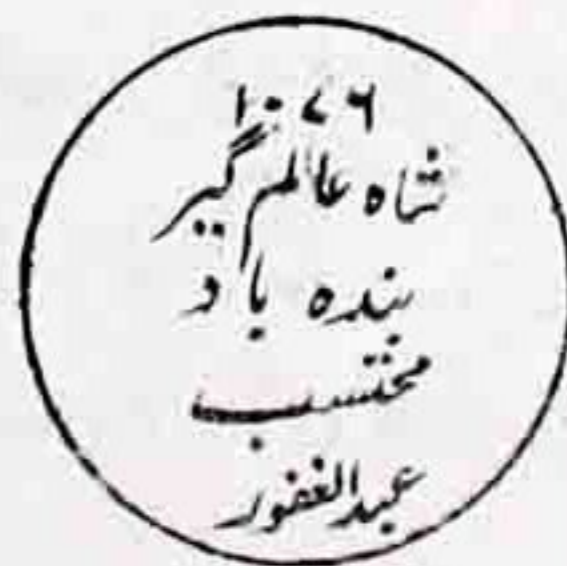 ۱۰۷۶
شاہ عالم گیر
بندہ باد
محتسب
عبدالغفور